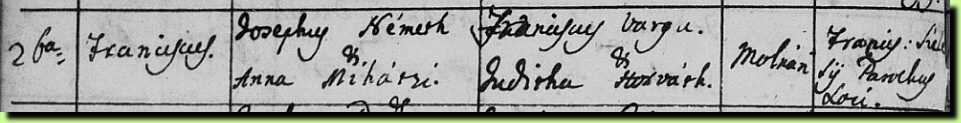 26a= Franciscus. Josephus Németh & Anna Mihátzi. Franciscus Varga. & Juditha Horváth. Molnár Francis:
sÿ Parochus
Loci.